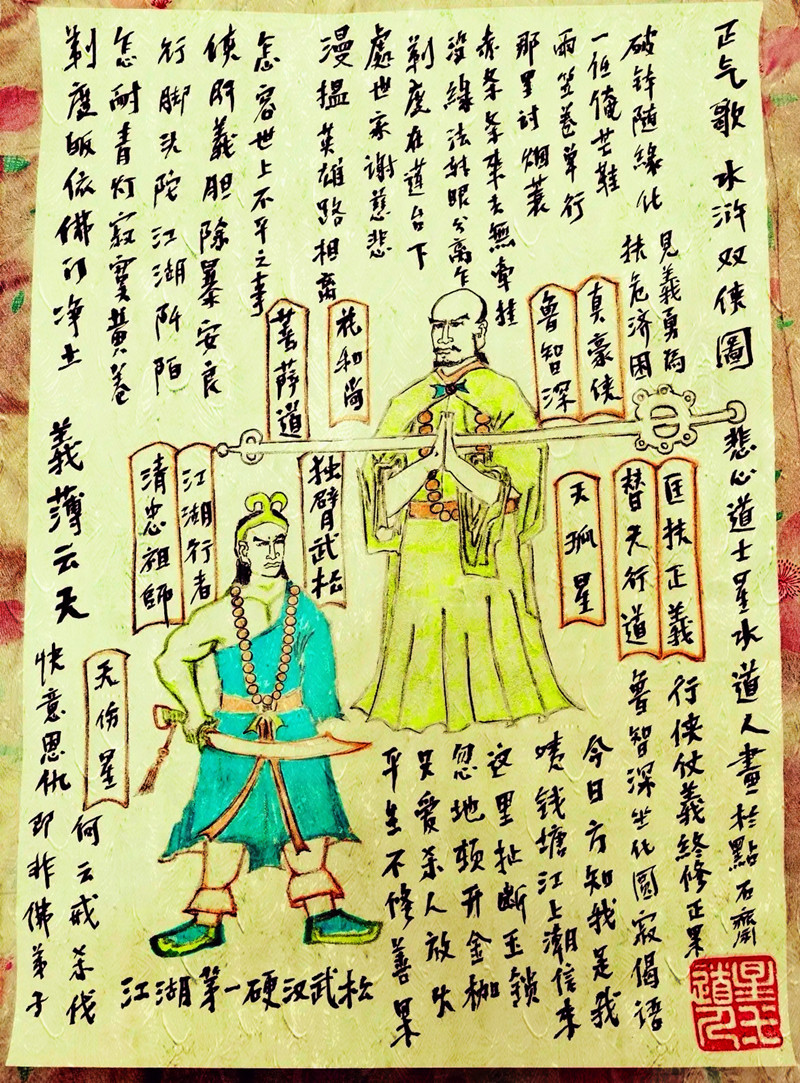 正气歌 水浒双侠圖
悲心道士星水道人畫於點石齋
見義勇為
扶危济困
破钵隨緣化
一任俺芒鞋
雨笠卷單行
那里討烟蓑
赤条条来去無牵挂
没緣法转眼分离乍
剃度在莲台下
處世家谢慈悲
漫揾英雄路相离
怎容世上不平之事
侠肝義胆除暴安良
行脚头陀江湖阡陌
怎耐青灯寂寞黄卷
剃度皈依佛门净土
真豪侠
魯智深
花和尚
菩萨道
匡扶正義
替天行道
天孤星
独臂武松
江湖行者
清忠祖師
義薄云天
天伤星
行侠仗義终修正果
魯智深坐化圆寂偈语
今日方知我是我
咦钱塘江上潮信来
这里扯断玉锁
忽地顿开金枷
只爱杀人放火
平生不修善果
江湖第一硬汉武松
何云戒杀伐
快意恩仇即非佛弟子